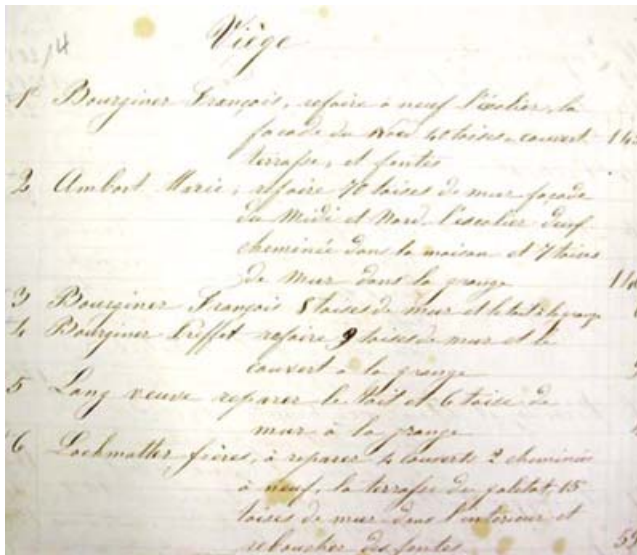 14
Viège
1° Bourginer François, refaire à neuf l'escalier, la
façade du Nord 40 toises, couvert 14
terrasse, et fentes
2 Ambort Marie, refaire 70 toises de mur façade
du Midi et Nord, l'escalier deuf
cheminée dans la maison et 7 toises
de mur dans la grange 110
3 Bourginer François 8 toises de mur et le toit de la grange
4 Bourginer refaire 9 toises de mur et le
couvert à la grange
5 Lang veuve reparer le toit et 6 toise de
mur à la grange
6 Lochmatter frères, à reparer 4 couverts 2 cheminées
à neuf, la terrasse du galetat, 15
toises de mur dans l'intérieur et
reboucher des fentes 53